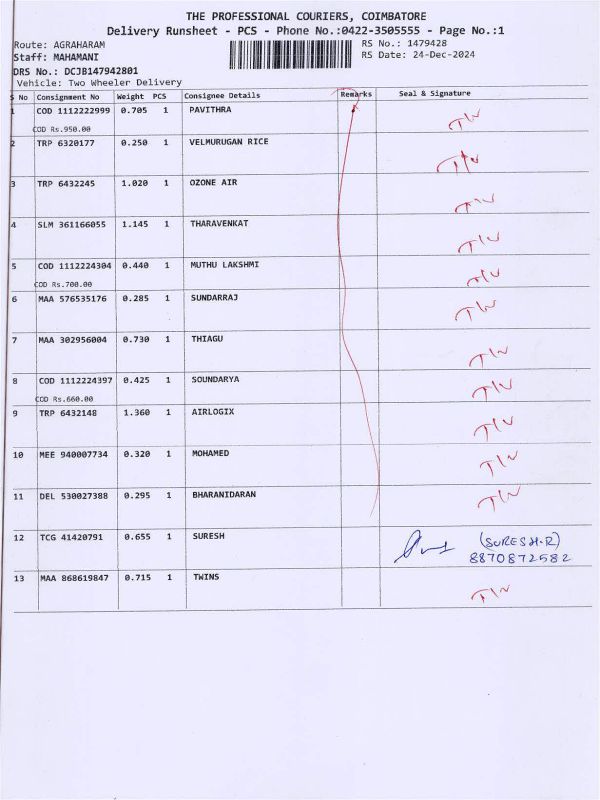 THE PROFESSIONAL COURIERS, COIMBATORE
Delivery Runsheet - PCS - Phone No.:0422-3505555 - Page No.:1
Route: AGRAHARAM RS No.: 1479428
Staff: MAHAMANI RS Date: 24-Dec-2024
DRS No.: DCJB147942801
Vehicle: Two Wheeler Delivery
S No Consignment No Weight PCS Consignee Details Remarks Seal & Signature
1 COD 1112222999 0.705 1 PAVITHRA T/W
COD Rs.950.00
2 TRP 6320177 0.250 1 VELMURUGAN RICE T/W
3 TRP 6432245 1.020 1 OZONE AIR T/W
4 SLM 361166055 1.145 1 THARAVENKAT T/W
5 COD 1112224304 0.440 1 MUTHU LAKSHMI T/W
COD Rs.700.00
6 MAA 576535176 0.285 1 SUNDARRAJ T/W
7 MAA 302956004 0.730 1 THIAGU T/W
8 COD 1112224397 0.425 1 SOUNDARYA T/W
COD Rs.660.00
9 TRP 6432148 1.360 1 AIRLOGIX T/W
10 MEE 940007734 0.320 1 MOHAMED T/W
11 DEL 530027388 0.295 1 BHARANIDARAN T/W
12 TCG 41420791 0.655 1 SURESH (SURESH.R)
8870872582
13 MAA 868619847 0.715 1 TWINS T/W